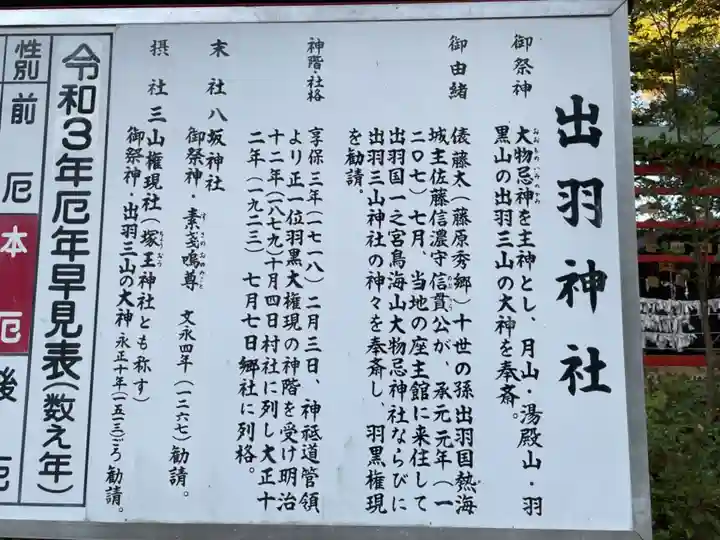 出羽神社
御祭神
大物忌神を主神とし、月山・湯殿山・羽
おおものいみのかみ
黒山の出羽三山の大神を奉斎。
御由緒
俵藤太(藤原秀郷)十世の孫出羽国熱海
城主佐藤信濃守信貫公が、承元元年(一
二〇七)七月、当地の座主館に来住して
出羽国一之宮鳥海山大物忌神社ならびに
出羽三山神社の神々を奉斎し、羽黒権現
を勧請。
神階・社格
享保三年(一七一八)二月三日、神祗道管領
より正一位羽黒大権現の神階を受け明治
十二年(一八七九)十月四日村社に列し大正十
二年(一九二三)七月七日郷社に列格。
末社八坂神社
御祭神・素戔嗚尊 文永四年(一二六七)勧請。
すさのおのみこと
摂社三山権現社(塚王神社とも称す)
御祭神・出羽三山の大神 永正十年(一五一三)ごろ勧請。
令和3年厄年早見表(数え年)
性別
前厄
本厄
後厄